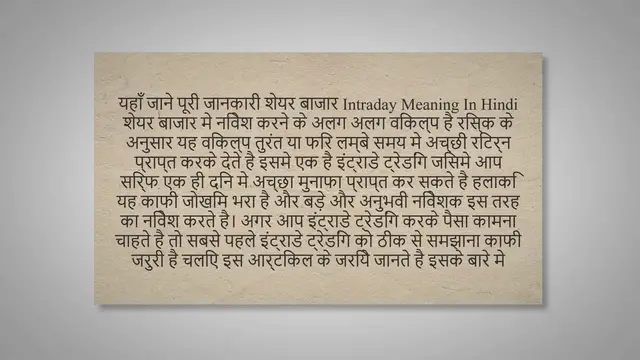 यहाँ जाने पूरी जानकारी शेयर बाजार Intraday Meaning In Hindi
शेयर बाजार मे निवेश करने के अलग अलग विकल्प है रिस्क के
अनुसार यह विकल्प तुरंत या फिर लम्बे समय मे अच्छी रिटर्न
प्राप्त करके देते है इसमे एक है इंट्राडे ट्रेडिंग जिसमे आप
सिर्फ एक ही दिन मे अच्छा मुनाफा प्राप्त कर सकते है हलाकि
यह काफी जोखिम भरा है और बड़े और अनुभवी निवेशक इस तरह
का निवेश करते है। अगर आप इंट्राडे ट्रेडिंग करके पैसा कामना
चाहते है तो सबसे पहले इंट्राडे ट्रेडिंग को ठीक से समझाना काफी
जरुरी है चलिए इस आर्टिकल के जरिये जानते है इसके बारे मे